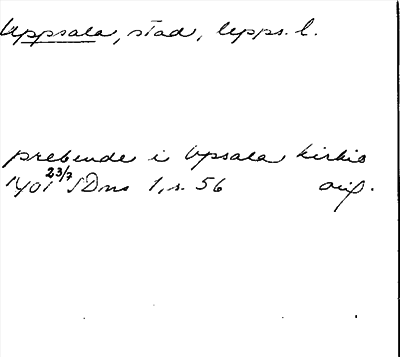 Uppsala, stad, Upps. l.
prebende i Upsala kirkio
1401 23/7 SDns 1, s. 56 orig.